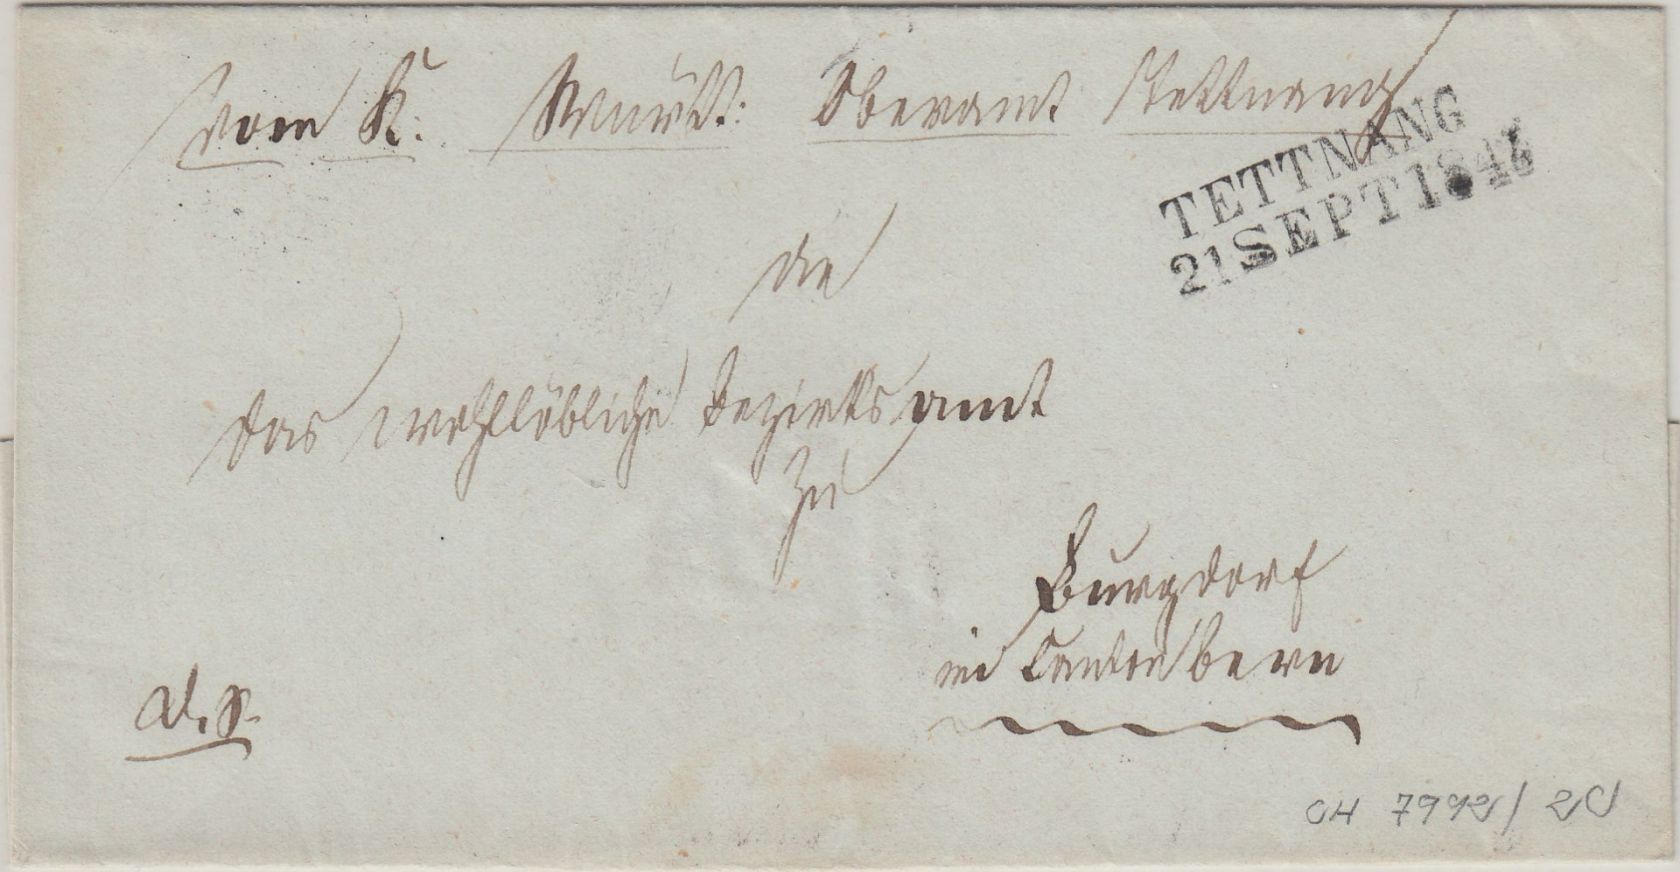 vom K. Württ: Oberamt Tettnang
TETTNANG
21 SEPT 184
An
das wohllöbliche Bezirksamt
zu
Burgdorf
im Canton Bern
D. S.
CH 7992/20